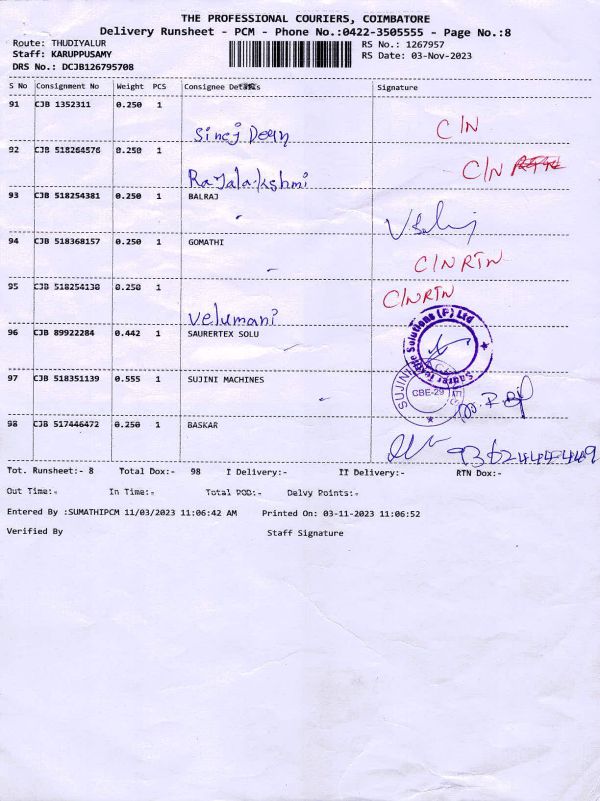 THE PROFESSIONAL COURIERS, COIMBATORE
Delivery Runsheet - PCM - Phone No.:0422-3505555 - Page No.:8
Route: THUDIYALUR
Staff: KARUPPUSAMY
DRS No.: DCJB126795708
RS No.: 1267957
RS Date: 03-Nov-2023
S No Consignment No Weight PCS Consignee Details Signature
91 CJB 1352311 0.250 1
C/N
92 CJB 518264576 0.250 1
Rajalakshmi C/N
93 CJB 518254381 0.250 1 BALRAJ
94 CJB 518368157 0.250 1 GOMATHI
C/N RTN
95 CJB 518254130 0.250 1
C/N RTN
Velumani
96 CJB 89922284 0.442 1 SAURERTEX SOLU
Solutions (P) Ltd
97 CJB 518351139 0.555 1 SUJINI MACHINES
SUJINI
CBE-29
98 CJB 517446472 0.250 1 BASKAR
Tot. Runsheet:- 8 Total Dox:- 98 I Delivery:- II Delivery:- RTN Dox:-
Out Time:- In Time:- Total POD:- Delvy Points:-
Entered By :SUMATHIPCM 11/03/2023 11:06:42 AM Printed On: 03-11-2023 11:06:52
Verified By Staff Signature